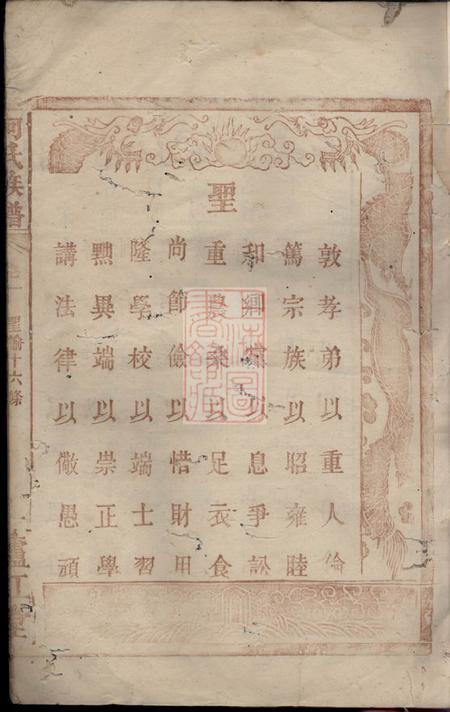 聖
敦孝弟以重人倫
篤宗族以昭雍睦
和鄉黨以息爭訟
重農桑以足衣食
尚節儉以惜財用
隆學校以端士習
黜異端以崇正學
講法律以儆愚頑
何氏族譜
聖諭十六條
廬江堂